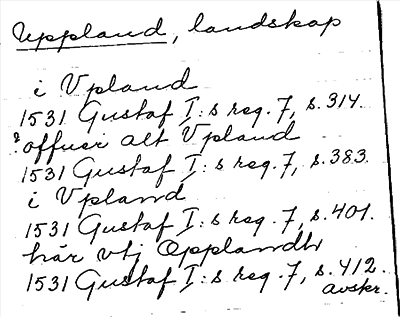 Uppland, landskap
i Vpland
1531 Gustaf I:s reg. 7, s. 314.
? offuer alt Vpland
1531 Gustaf I:s reg. 7, s. 383.
i Vpland
1531 Gustaf I:s reg. 7, s. 401.
här vtj Opplandh
1531 Gustaf I:s reg. 7, s. 412.
avskr.